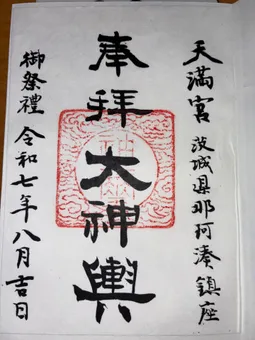 天満宮 茨城县那珂湊鎮座
奉拝 大神輿
御祭禮 令和七年八月吉日